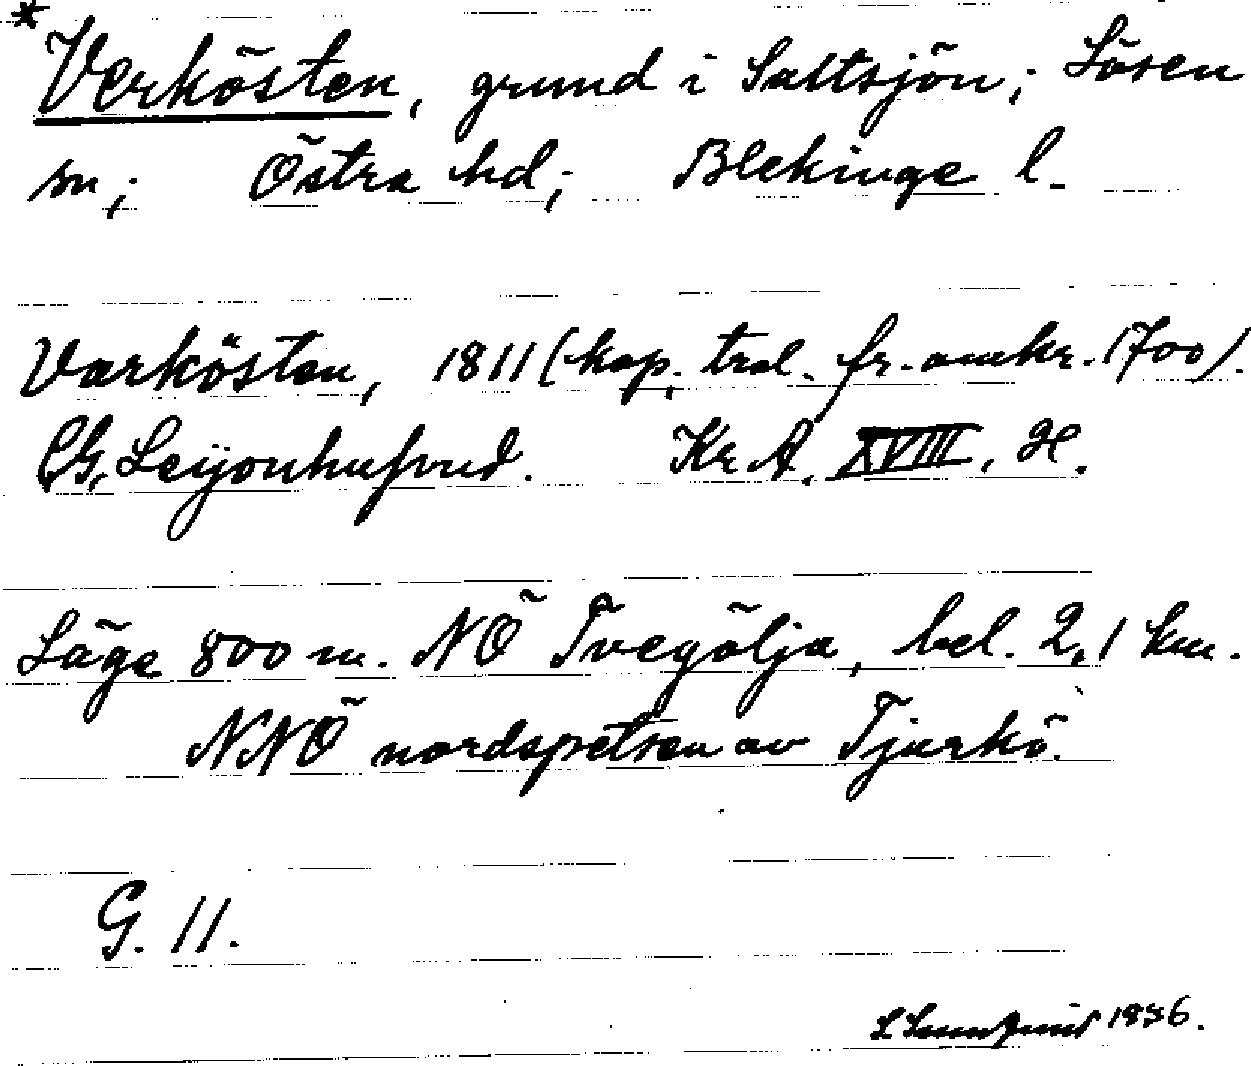 * Verkösten, grund i Saltsjön; Lösen
sn; Östra hd; Blekinge l.
Varkösten, 1811 (kop. trol. fr. omkr. 1700).
CG. Leijonhufvud. Kr. A. XVIII, H.
Läge 800 m. NÖ Tvegölja, bel. 2,1 km.
NNÖ nordspetsen av Tjurkö.
G. 11.
1956.